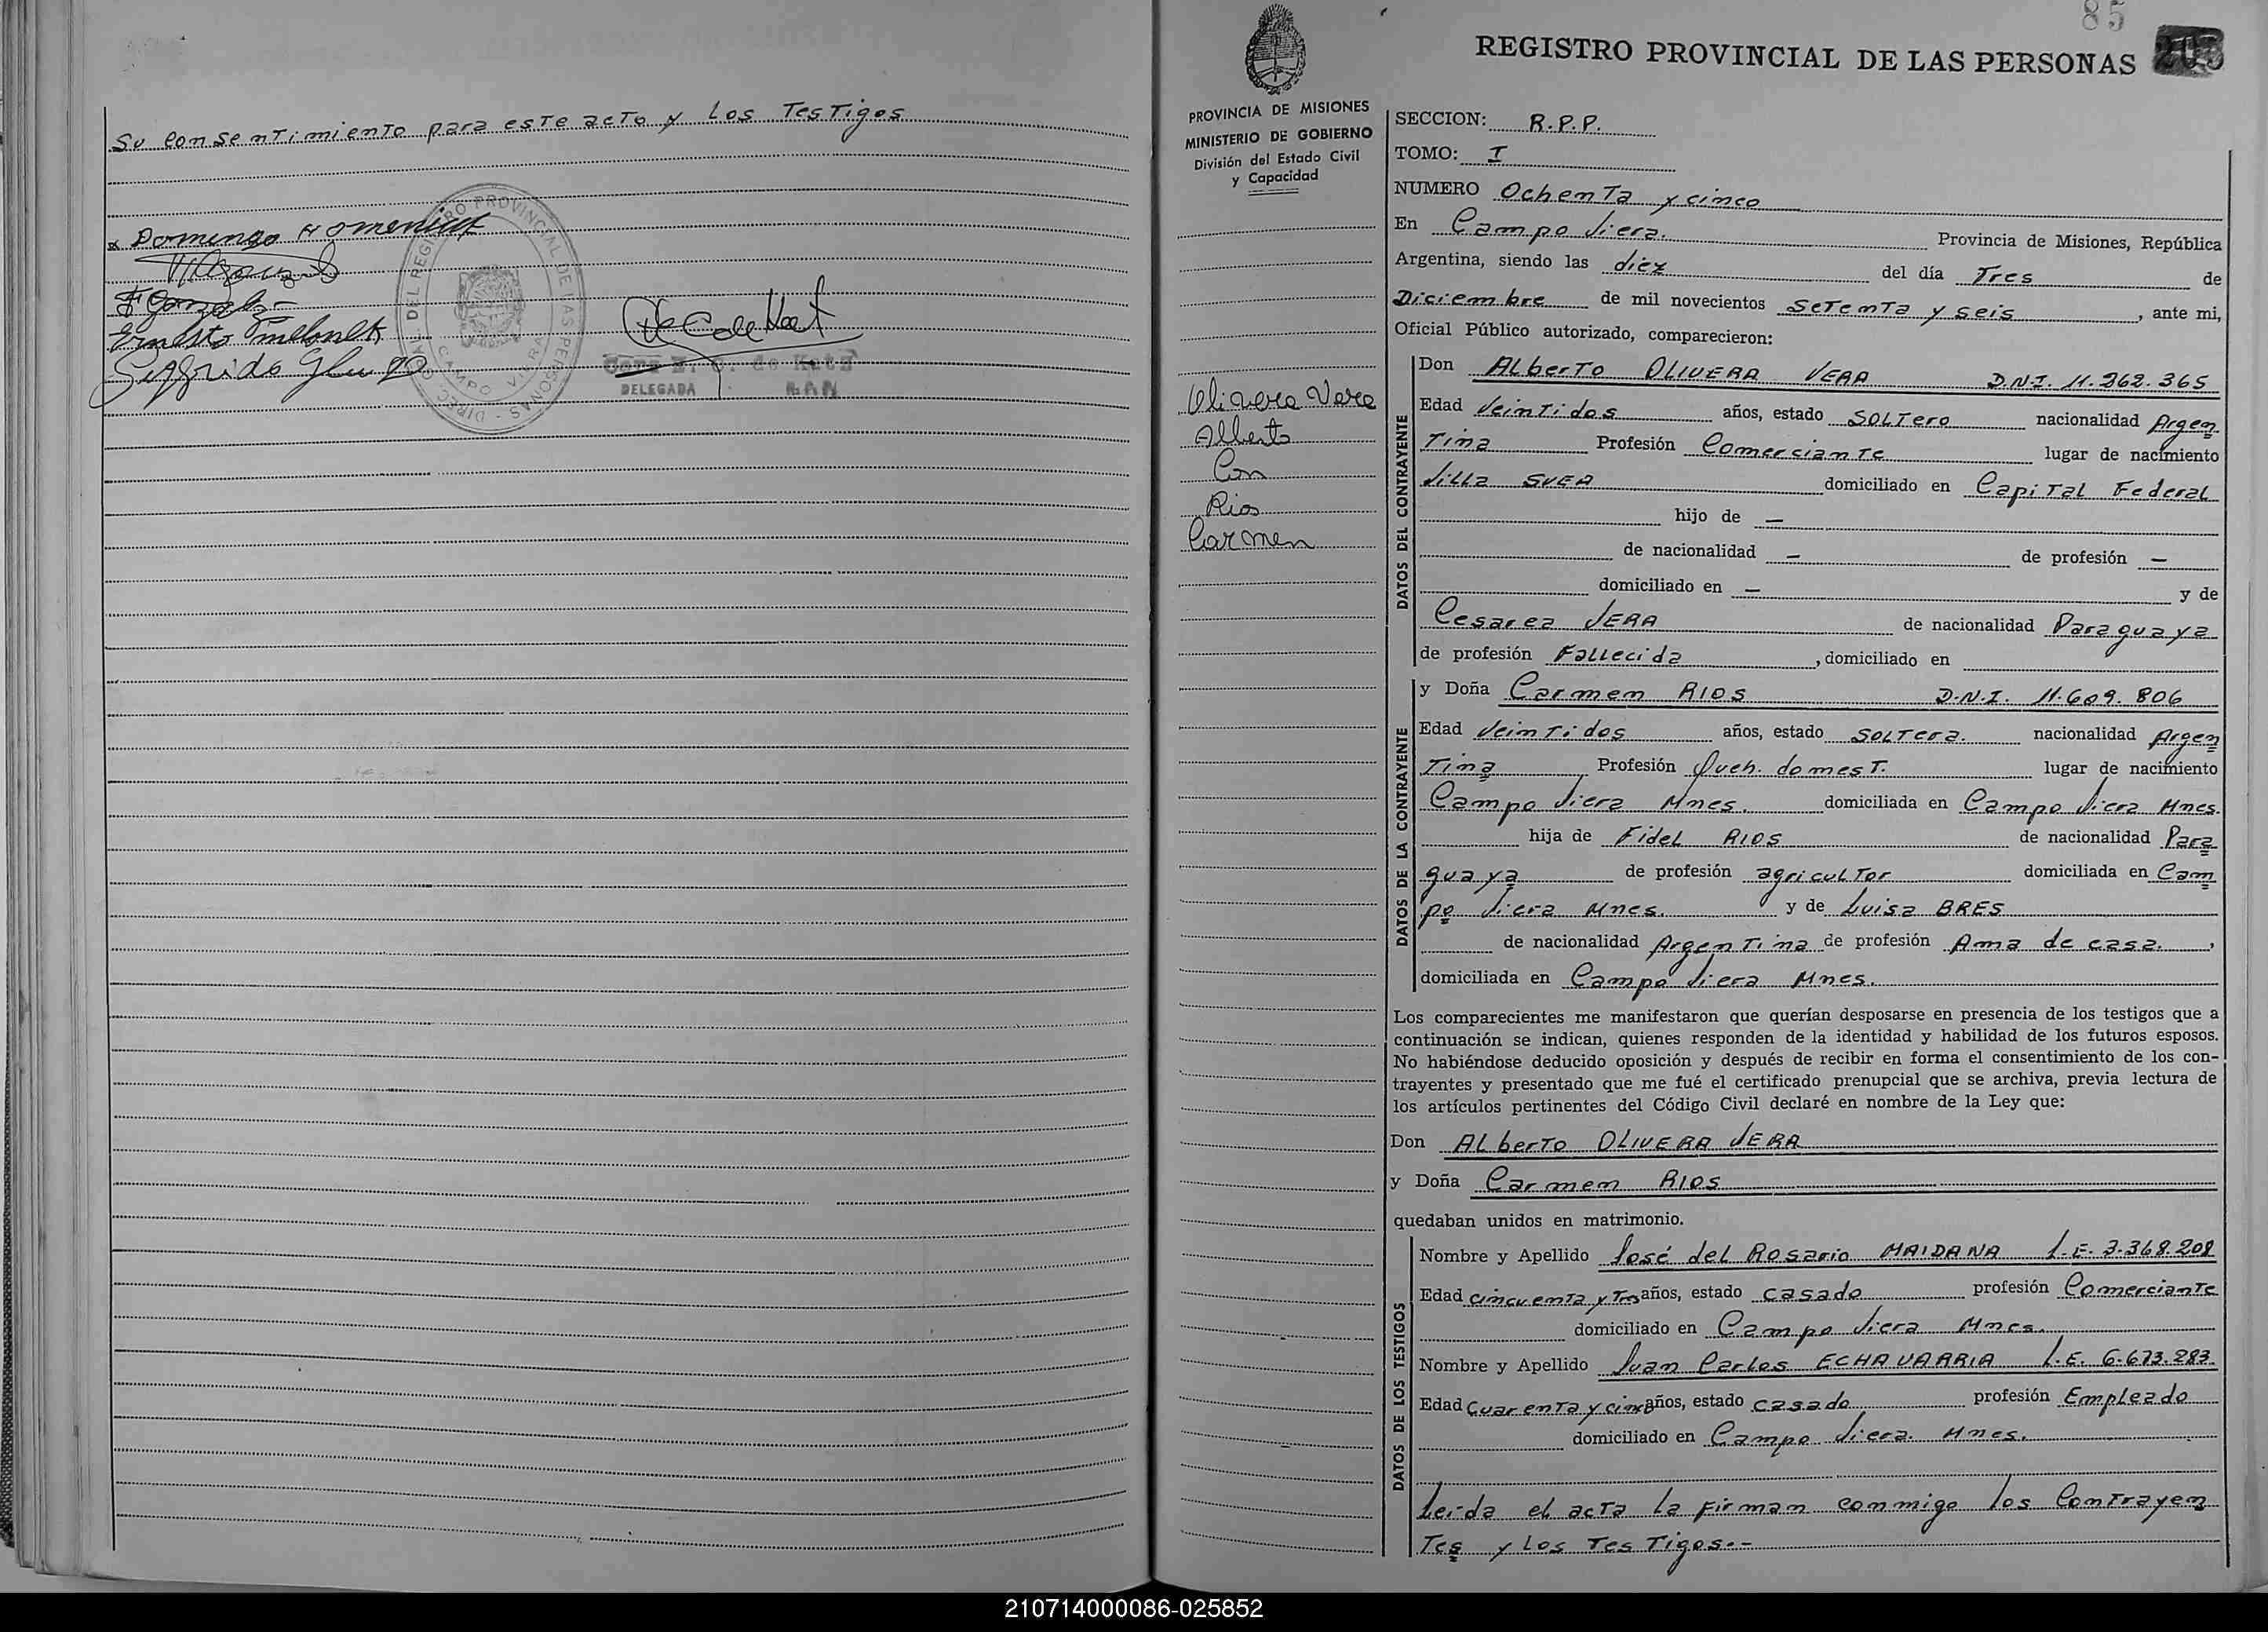 su consentimiento para este acto y los Testigos
Domingo Homeniuk
F Gonzalez
Ernesto
DIREC. GRAL. DEL REGISTRO PROVINCIAL DE LAS PERSONAS
CAMPO VIERA
de Katz
DELEGADA
85
203
REGISTRO PROVINCIAL DE LAS PERSONAS
PROVINCIA DE MISIONES
MINISTERIO DE GOBIERNO
División del Estado Civil
y Capacidad
Olivera Vera
Alberto
Con
Rios
Carmen
SECCION: R.P.P.
TOMO: I
NUMERO Ochenta y cinco
En Campo Viera. Provincia de Misiones, República
Argentina, siendo las diez del día Tres de
Diciembre de mil novecientos setenta y seis, ante mi,
Oficial Público autorizado, comparecieron:
DATOS DEL CONTRAYENTE
Don Alberto OLIVERA VERA D.N.I. 11.262.365
Edad Veintidos años, estado Soltero nacionalidad Argen
tina Profesión Comerciante lugar de nacimiento
Villa SVEA domiciliado en Capital Federal
hijo de —
de nacionalidad — de profesión —
domiciliado en — y de
Cesarea VERA de nacionalidad Paraguaya
de profesión Fallecida, domiciliado en
DATOS DE LA CONTRAYENTE
y Doña Carmen RIOS D.N.I. 11.609.806
Edad Veintidos años, estado Soltera. nacionalidad Argen
tina Profesión Queh. domest. lugar de nacimiento
Campo Viera Mnes. domiciliada en Campo Viera Mnes.
hija de Fidel RIOS de nacionalidad Para
guaya de profesión agricultor domiciliada en Cam
po Viera Mnes. y de Luisa BRES
de nacionalidad Argentina de profesión Ama de casa.,
domiciliada en Campo Viera Mnes.
Los comparecientes me manifestaron que querían desposarse en presencia de los testigos que a
continuación se indican, quienes responden de la identidad y habilidad de los futuros esposos.
No habiéndose deducido oposición y después de recibir en forma el consentimiento de los con-
trayentes y presentado que me fué el certificado prenupcial que se archiva, previa lectura de
los artículos pertinentes del Código Civil declaré en nombre de la Ley que:
Don Alberto OLIVERA VERA
y Doña Carmen RIOS
quedaban unidos en matrimonio.
DATOS DE LOS TESTIGOS
Nombre y Apellido José del Rosario MAIDANA L.E. 3.368.208
Edad cincuenta y tres años, estado casado profesión Comerciante
domiciliado en Campo Viera Mnes.
Nombre y Apellido Juan Carlos ECHAVARRIA L.E. 6.673.283.
Edad Cuarenta y cinco años, estado casado profesión Empleado
domiciliado en Campo Viera. Mnes.
Leida el acta la firman conmigo los Contrayen
tes y los Testigos.-
210714000086-025852